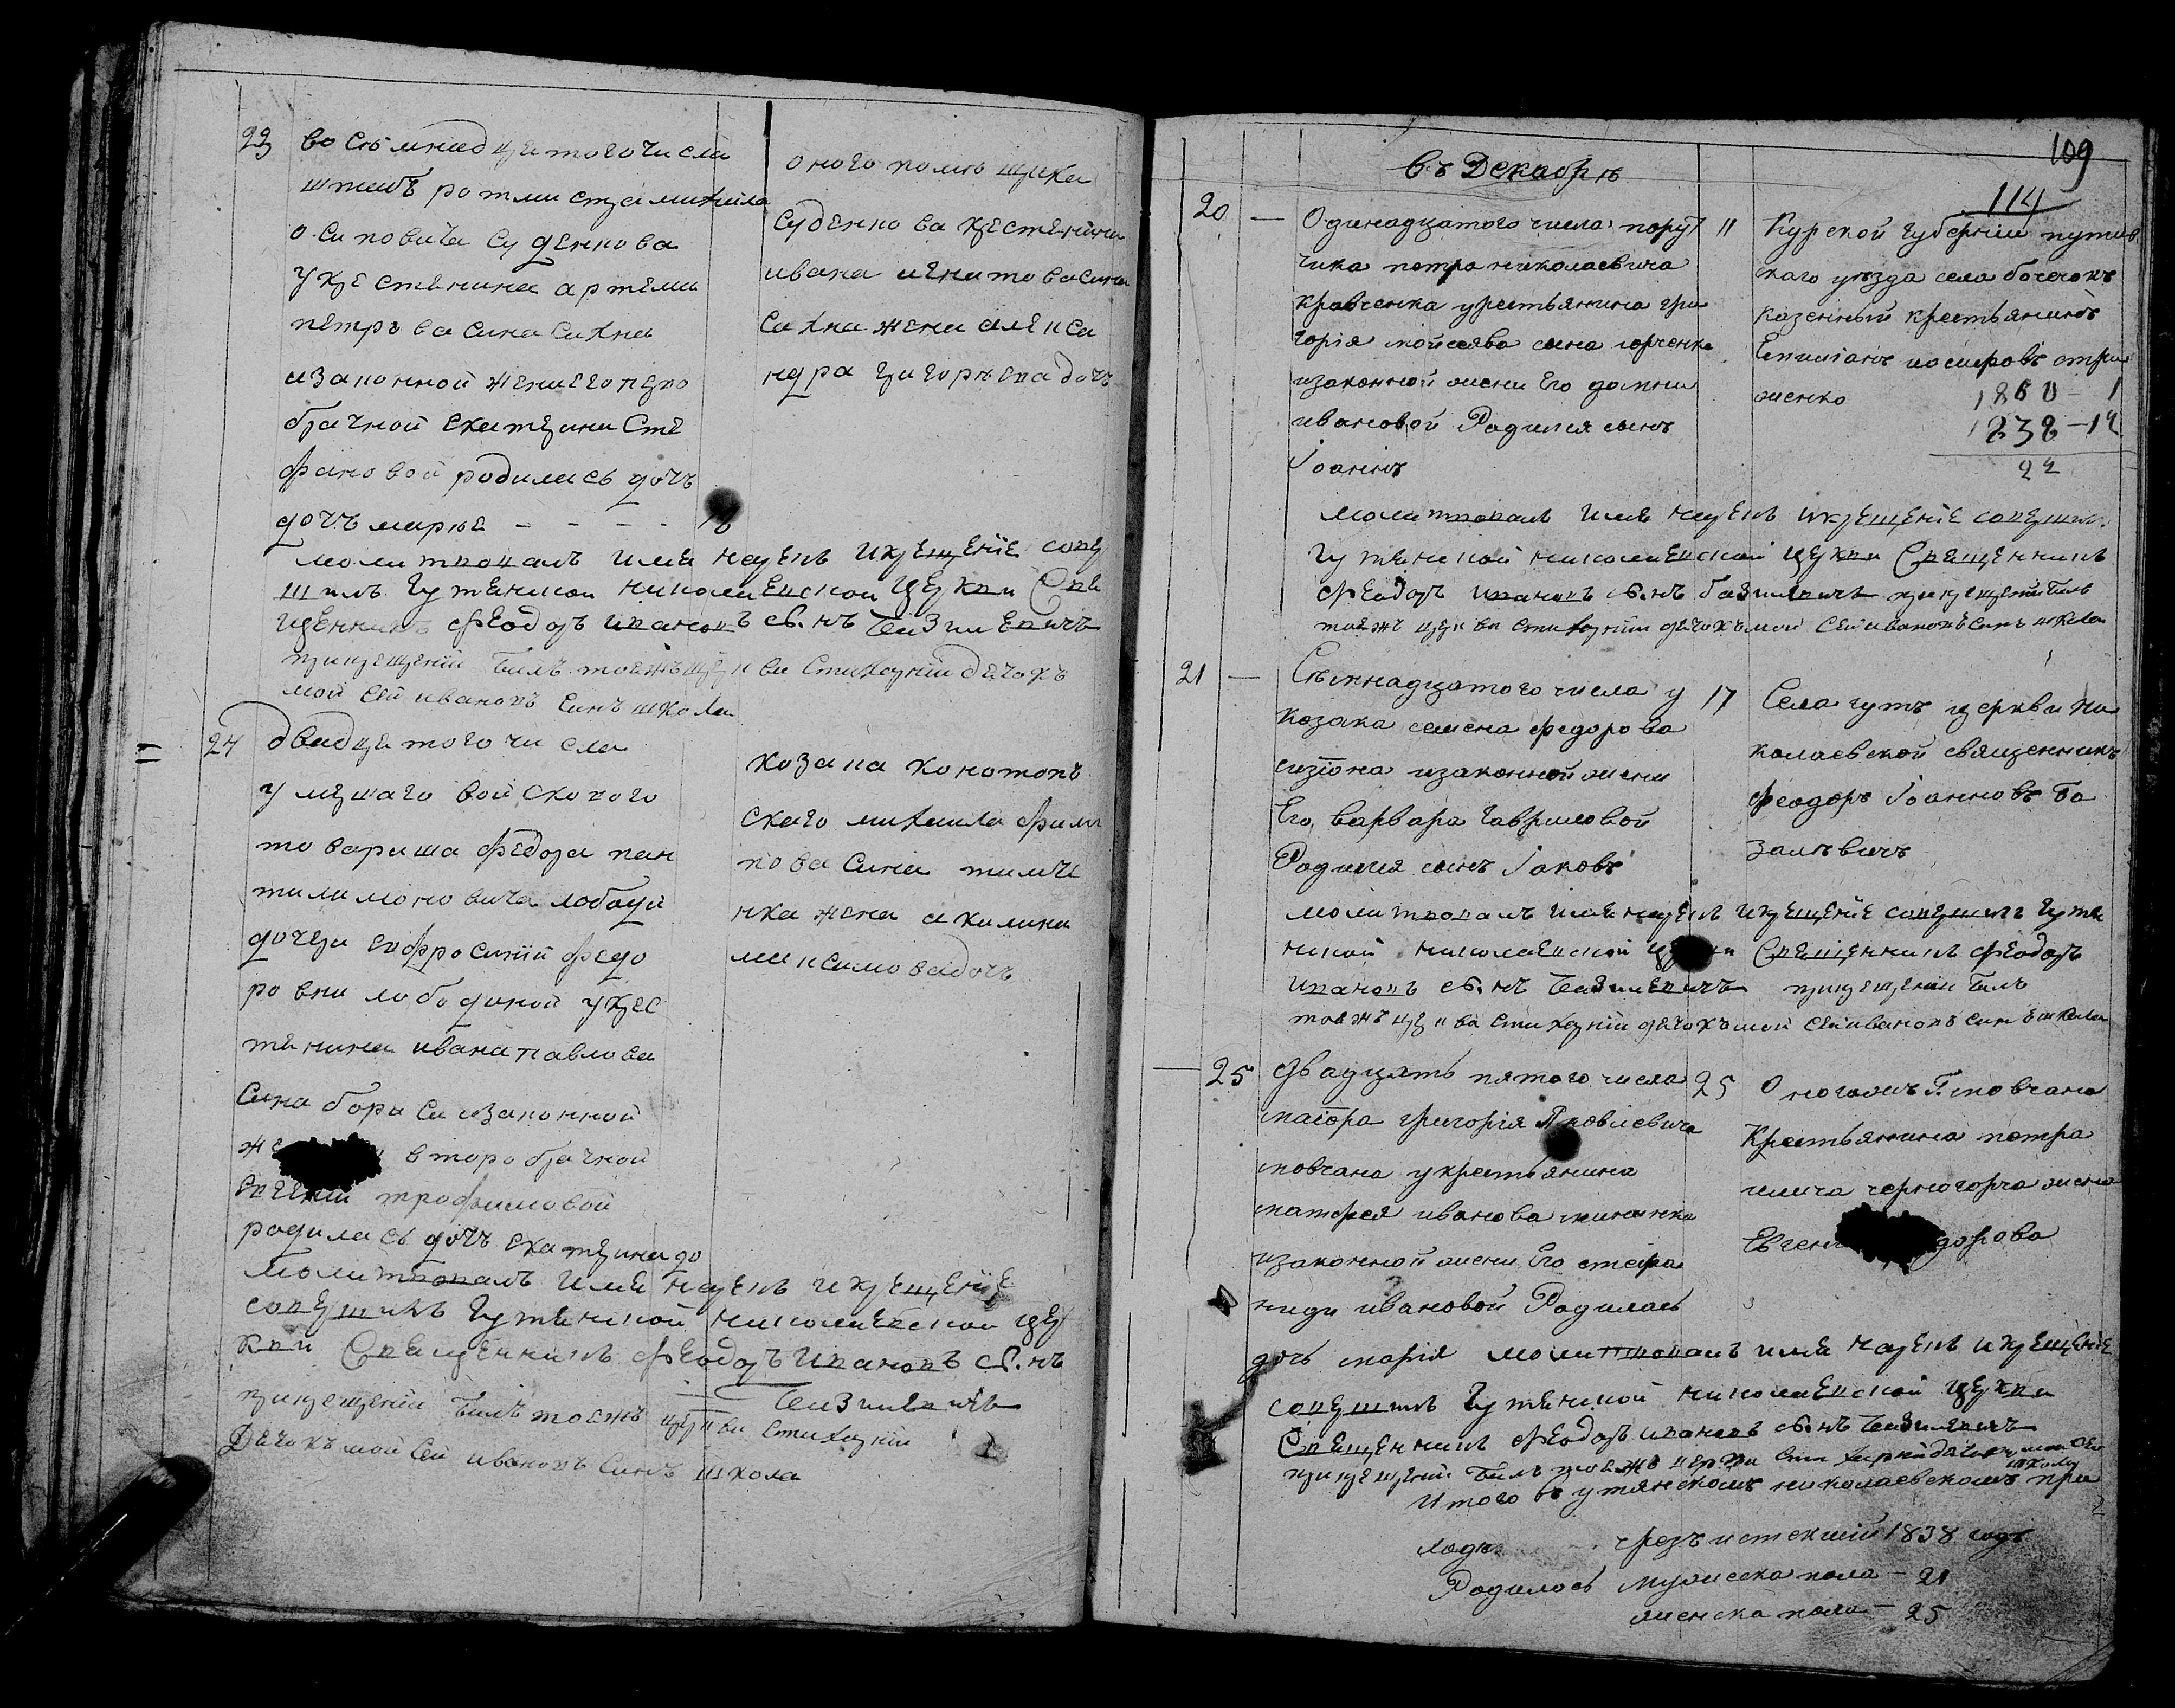 23
восъмнадцатого числа
штабъ ротмистра михаила
осиповича Судѣнкова
укрестянина артема
петрова сина Сахна
изаконной жени его перво
брачной екатерини Сте
фановой родилась дочъ
дочъ марья - - - - 18
оного помѣщика
Судѣнкова крестянина
ивана игнатова сина
Сахна жена алекса
ндра григорѣева дочъ
молитвовалъ имя нарекъ икрещенїе совер
шилъ Гутянской николаевской церкви Свя
щенникъ Феодоръ ивановъ с. нъ Базилевичъ
прикрещенїи билъ тоежъ церкви стихарнїи дячокъ
мой сей ивановъ синъ школа
24
двадцатого числа
умершаго войскового
товариша федора пан
тилимоновича лободи
дочери ефросинїи федо
ровни лободиной укрес
тянина ивана павлова
сина бориса изаконной
второбрачной
трофимовой
родилась дочъ екатерина 20
козака конотопъ
скаго михаила фили
пова сина тимче
нка жена акилина
максимова дочъ
молитвовалъ имя нарекъ икрещенїе
совершилъ Гутянской николаевской цер
кви Священникъ Феодоръ ивановъ с. нъ
Базилевичъ
прикрещенїи билъ тоежъ церкви стихарнїи
Дячокъ мой сей ивановъ синъ школа
109
114
Въ Декабрѣ
20 —
Одинадцатого числа пору
чика петра николаевича
кравченка укрестьянина гри
горія мойсеява сына юрченка
изаконной жени Его домни
ивановой Родился сынъ
Іоаннъ
11
Курской губерніи путив
скаго уѣзда села бочечокъ
казенный крестьянинъ
Емиліанъ
женко
1860 - 1
1838 - 12
22
молитвовалъ имя нарекъ икрещенїе совершилъ
Гутянской николаевской церкви Священникъ
Феодоръ ивановъ с. нъ базилевичъ прикрещенїи билъ
тоежъ церкви стихарнїи дячокъ мой сей ивановъ синъ школа
21 —
Семнадцатого числа у
козака семена федорова
сизіона изаконной жени
Его варвара гавриловой
Родился сынъ Іаковъ
17
Села гутъ церкви ни
колаевской священникъ
феодоръ Іоанновъ Ба
залѣвичъ
молитвовалъ имя нарекъ икрещенїе совершилъ Гутя
нской николаевской церкви Священникъ Феодоръ
ивановъ с. нъ Базилевичъ прикрещенїи билъ
тоежъ церкви стихарнїи дячокъ мой сей ивановъ синъ школа
— 25
двадцять пятого числа
маіора григорія Яковлевича
мовчана укрестьянина
матфея иванова
изаконной жени Его стефа
ниди ивановой Родилась
дочь марія
25
Оногожъ Г. мовчана
Крестьянина петра
жена
молитвовалъ имя нарекъ икрещенїе
совершилъ Гутянской николаевской церкви
Священникъ Феодоръ ивановъ с. нъ Базилевичъ
прикрещенїи билъ тоежъ церкви стихарнїй дячокъ мой сей
школа
Итого въ гутянскомъ николаевскомъ при
ходѣ чрезъ истекшій 1838 годъ
Родилось мужеска пола — 21
женска пола — 25